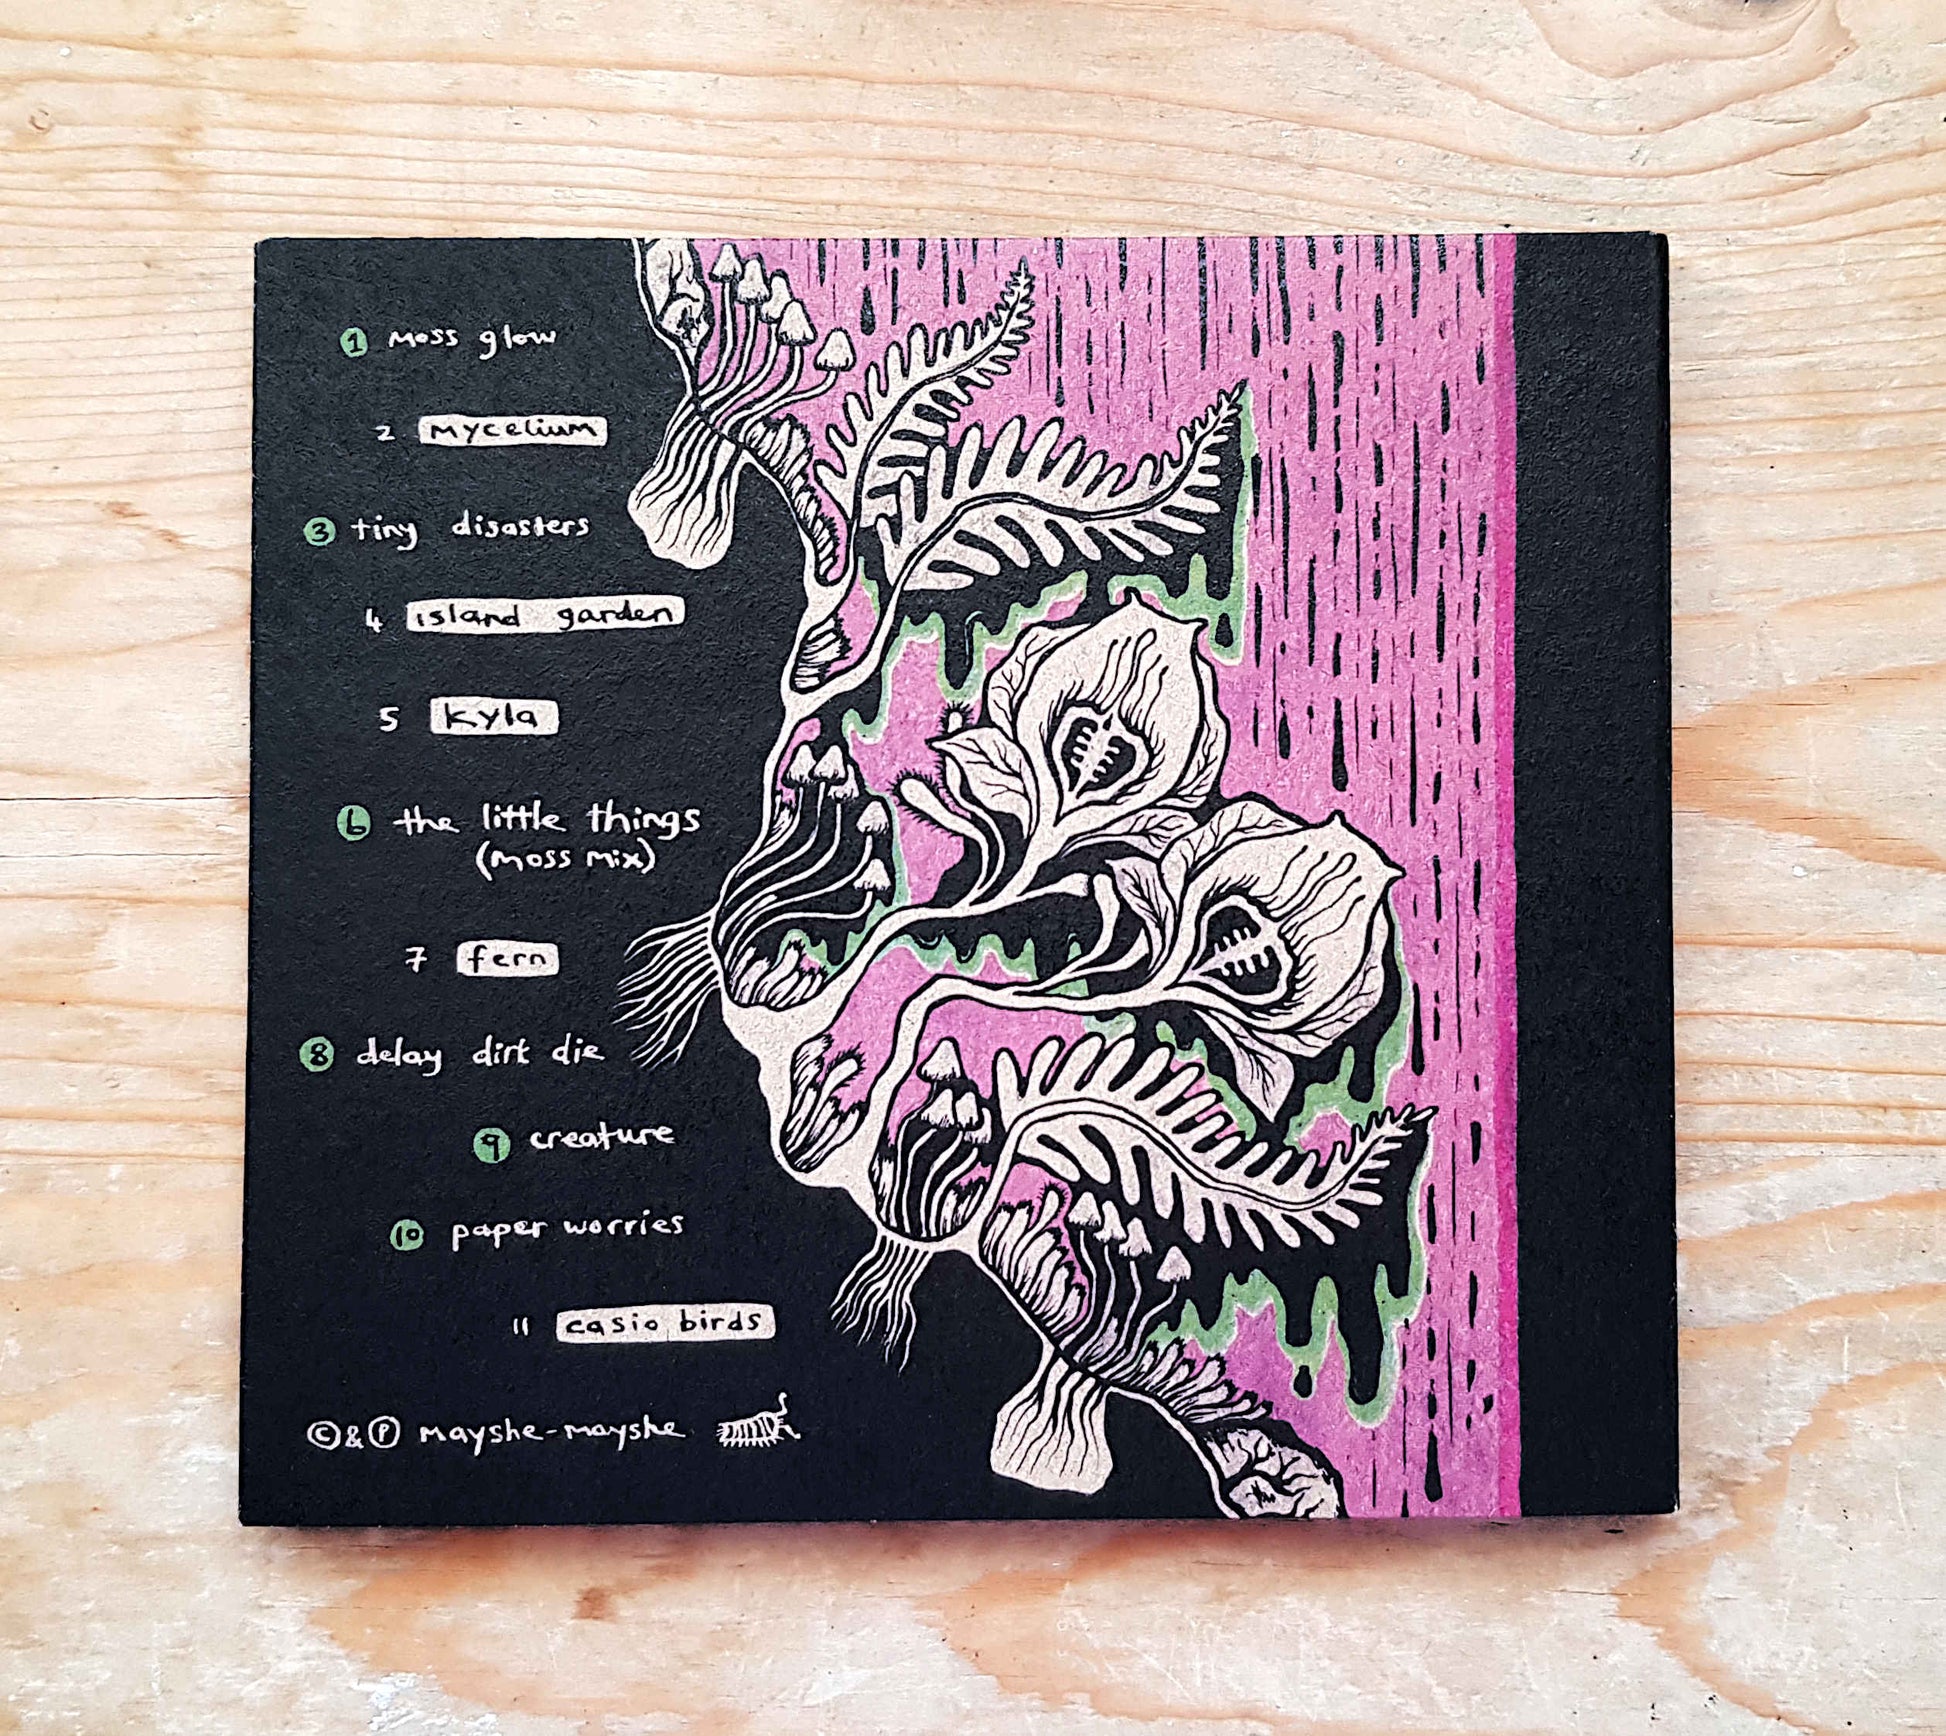 1 moss glow
2 mycelium
3 tiny disasters
4 island garden
5 kyla
6 the little things
(moss mix)
7 fern
8 delay dirt die
9 creature
10 paper worries
11 casio birds
©&℗ mayshe-mayshe